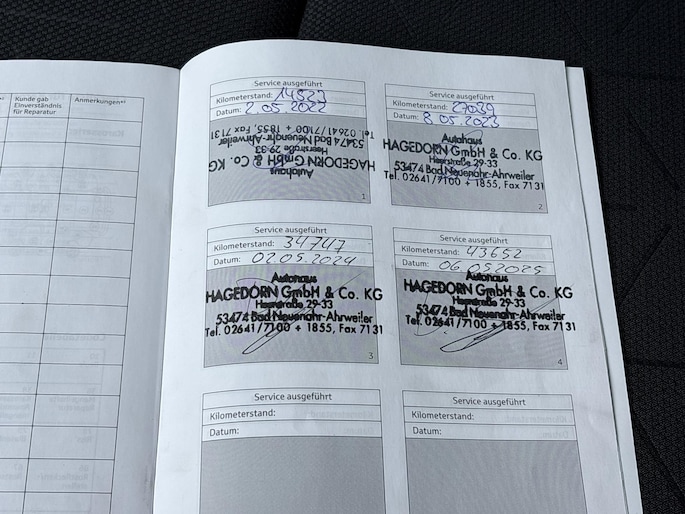 Kunde gab
Einverständnis
für Reparatur
Anmerkungen*¹
Service ausgeführt
Kilometerstand: 14523
Datum: 2.05.2022
Autohaus
HAGEDORN GmbH & Co. KG
Heerstraße 29-33
53474 Bad Neuenahr-Ahrweiler
Tel. 02641/7100 + 1855, Fax 7131
1
Service ausgeführt
Kilometerstand: 27089
Datum: 8 05.2023
Autohaus
HAGEDORN GmbH & Co. KG
Heerstraße 29-33
53474 Bad Neuenahr-Ahrweiler
Tel. 02641/7100 + 1855, Fax 7131
2
Service ausgeführt
Kilometerstand: 34747
Datum: 02.05.2024
Autohaus
HAGEDORN GmbH & Co. KG
Heerstraße 29-33
53474 Bad Neuenahr-Ahrweiler
Tel. 02641/7100 + 1855, Fax 7131
3
Service ausgeführt
Kilometerstand: 43652
Datum: 06.05.2025
Autohaus
HAGEDORN GmbH & Co. KG
Heerstraße 29-33
53474 Bad Neuenahr-Ahrweiler
Tel. 02641/7100 + 1855, Fax 7131
4
Service ausgeführt
Kilometerstand:
Datum:
Service ausgeführt
Kilometerstand:
Datum: